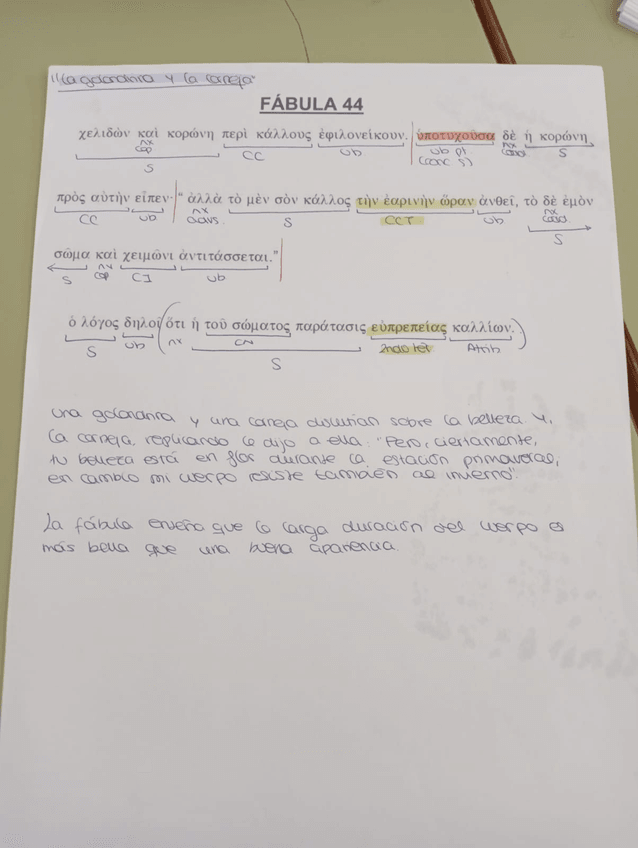 "La golondrina y la corneja"
FÁBULA 44
χελιδὼν καὶ κορώνη περὶ κάλλους ἐφιλονείκουν. ὑποτυχοῦσα δὲ ἡ κορώνη
nx cop S CC Vb Vb pt. (conc S) nx coord S
πρὸς αὐτὴν εἶπεν· "ἀλλὰ τὸ μὲν σὸν κάλλος τὴν ἐαρινὴν ὥραν ἀνθεῖ, τὸ δὲ ἐμὸν
CC Vb nx S CCT Vb nx coord S
σῶμα καὶ χειμῶνι ἀντιτάσσεται."
S nx cop CI Vb
ὁ λόγος δηλοῖ (ὅτι ἡ τοῦ σώματος παράτασις εὐπρεπείας καλλίων.)
S Vb nx CN S 2ndo tér Atrib
Una golondrina y una corneja discutían sobre la belleza. Y,
la corneja, replicando le dijo a ella: "Pero, ciertamente,
tu belleza está en flor durante la estación primaveral,
en cambio mi cuerpo resiste también al invierno".
La fábula enseña que la larga duración del cuerpo es
más bella que una buena apariencia.